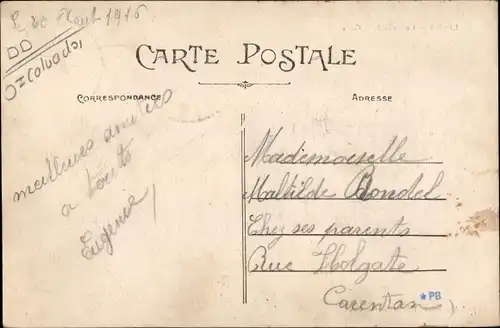 Le 20 Aout 1916
DD
CARTE POSTALE
CORRESPONDANCE
ADRESSE
meilleures amities
a touts
Eugénie
Mademoiselle
Mathilde Bondel
Chez ses parents
Rue Holgate
Carentan
*PB